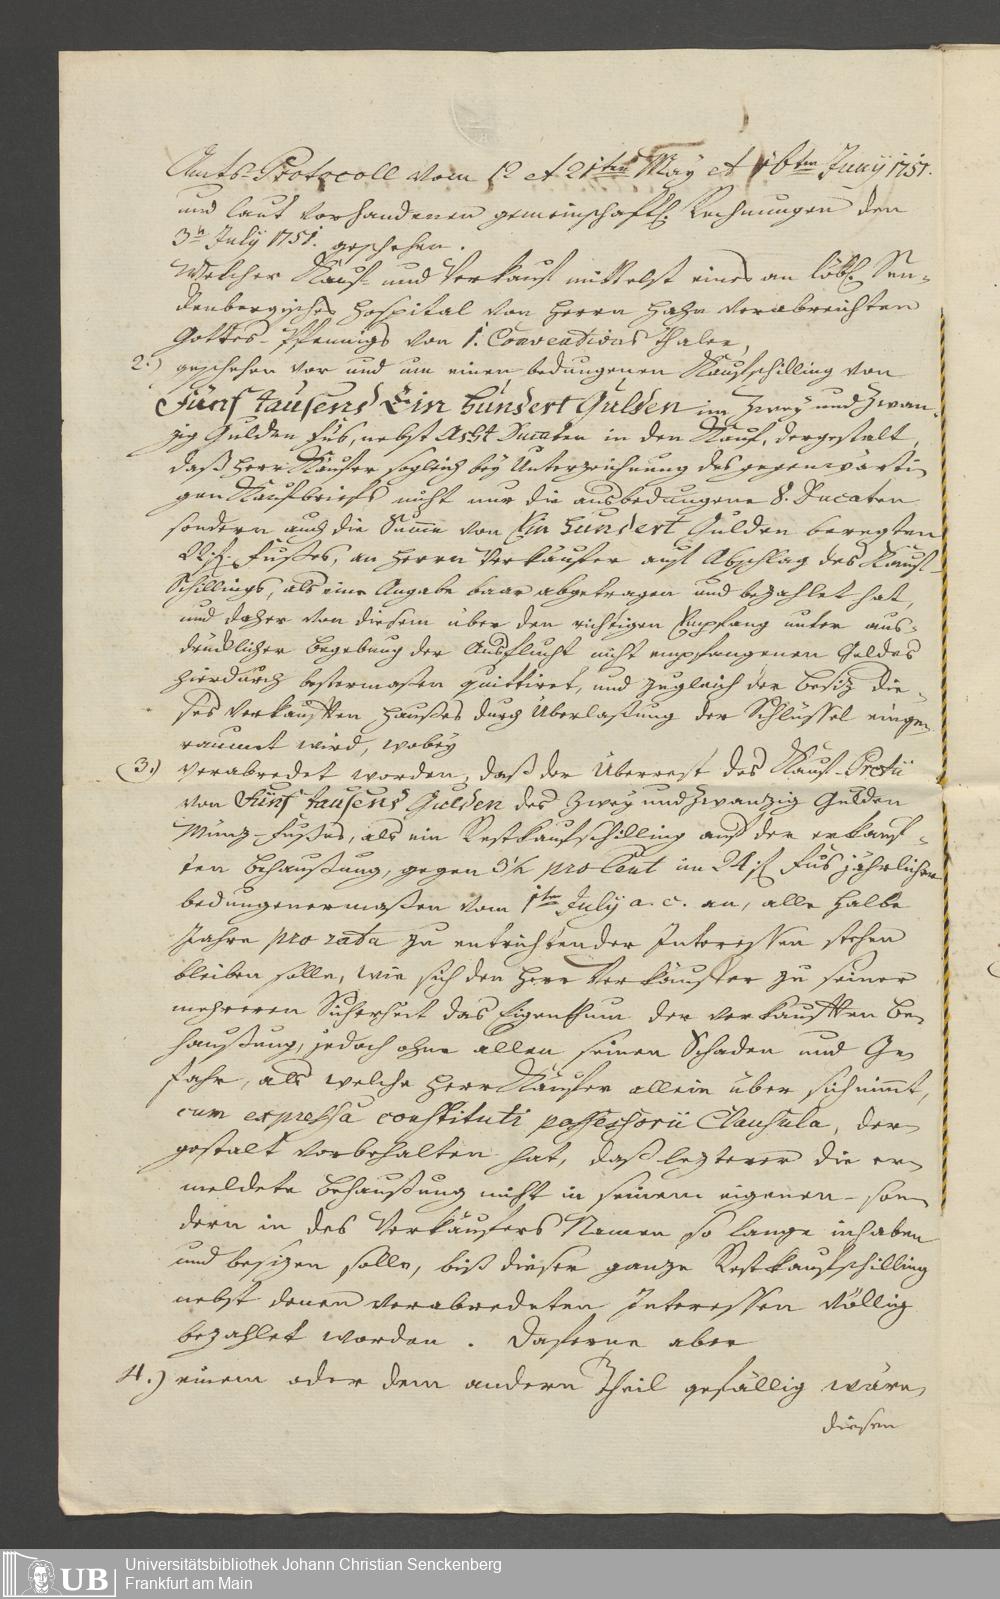 Amts-Protocoll vom 12 et 21ten May et 16ten Junij 1751.
und laut vorhandenen gemeinschaftl. Rechnungen den
3n July 1751. geschehen.
Welcher Kauf und Verkauf mittelst eines an löbl. Sen-
kenbergisches Hospital von Herrn Hahn verabreichten
Gottes-Pfennigs von 1. Conventions Thaler,
2.) geschehen vor und um einen bedungenen Kaufschilling von
Fünf tausend Ein Hundert Gulden im Zwey und Zwan-
zig Gulden Fus, nebst Acht Ducaten in den Kauf, dergestalt,
daß Herr Käufer sogleich bey Unterzeichnung des gegenwärti-
gen Kaufbriefs nicht nur die ausbedungene 8. Ducaten
sondern auch die Summ von Ein Hundert Gulden beregten
22. f. Fußes, an Herrn Verkäufer auf Abschlag des Kauf-
Schillings, als eine Angabe baar abgetragen und bezahlet hat,
und daher von diesem über den richtigen Empfang unter aus-
drücklicher Begebung der Ausflucht nicht empfangenen Geldes
hierdurch bestermasen quittiret, und zugleich der Besiz die-
ses verkauften Haußes durch Überlaßung der Schlüssel einge-
raumt wird, wobey
3.) verabredet worden, daß der Überrest des Kauf-Pretii
von Fünf tausend Gulden des Zwey und Zwantzig Gulden
Münz-Fußes, als ein Restkaufschilling auf der erkauf-
ten Behaußung, gegen 3½ pro Cent im 24. f. Fus jährlicher
bedungenermaßen vom 1ten July a. c. an, alle halbe
Jahre pro rata zu entrichtender Interessen stehen
bleiben solle, wie sich den Herr Verkäuffer zu seiner
mehreren Sicherheit das Eigenthum der verkauften Be-
haußung, jedoch ohne allen seinen Schaden und Ge-
fahr, als welche Herr Käufer allein über sich nimmt,
cum expressa constituti possessorii Clausula, der-
gestalt vorbehalten hat, daß lezterer die er-
meldete Behaußung nicht in seinem eigenen- son-
dern in des Verkäufers Namen so lange inhaben
und besizen solle, biß dieser ganze Restkaufschilling
nebst denen verabredeten Interessen völlig
bezahlet worden. Daferne aber
4.) einem oder dem andern Theil gefällig wäre,
diesen
UB
Universitätsbibliothek Johann Christian Senckenberg
Frankfurt am Main